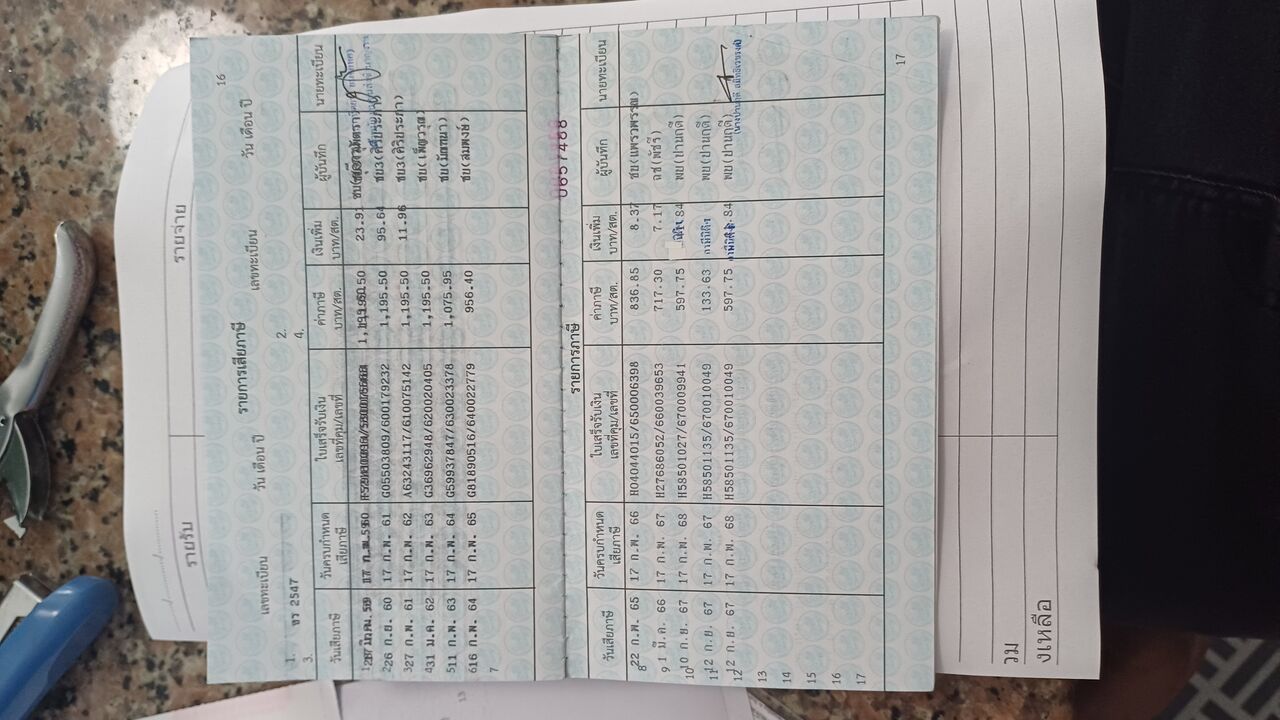 16
รายการเสียภาษี
เลขทะเบียน วัน เดือน ปี เลขทะเบียน วัน เดือน ปี
1. 2.
ขว 2547
3. 4.
วันเสียภาษี วันครบกำหนดเสียภาษี ใบเสร็จรับเงินเล่มที่คุม/เลขที่ ค่าภาษี บาท/สต. เงินเพิ่ม บาท/สต. ผู้บันทึก นายทะเบียน
1 23.91
2 26 ก.ย. 60 17 ก.พ. 61 G05503809/600179232 1,195.50 95.64 ชบ3(ศิริประภา)
3 27 ก.พ. 61 17 ก.พ. 62 A63243117/610075142 1,195.50 11.96 ชบ3(ศิริประภา)
4 31 ม.ค. 62 17 ก.พ. 63 G36962948/620020405 1,195.50
5 11 ก.พ. 63 17 ก.พ. 64 G59937847/630023378 1,075.95
6 16 ก.พ. 64 17 ก.พ. 65 G81890516/640022779 956.40 ชบ(สมพงษ์)
7
0657468
รายการภาษี
วันเสียภาษี วันครบกำหนดเสียภาษี ใบเสร็จรับเงินเล่มที่คุม/เลขที่ ค่าภาษี บาท/สต. เงินเพิ่ม บาท/สต. ผู้บันทึก นายทะเบียน
8 22 ก.พ. 65 17 ก.พ. 66 H04044015/650006398 836.85 8.37 ชบ(แพรวพรรณ)
9 1 มี.ค. 66 17 ก.พ. 67 H27686052/660039653 717.30 7.17 ฉช(พชรี)
10 10 ก.ย. 67 17 ก.พ. 68 H58501027/670009941 597.75 .84 พย(ปานฤดี)
11 12 ก.ย. 67 17 ก.พ. 67 H58501135/670010049 133.63 กรณีนิติฯ พย(ปานฤดี)
12 12 ก.ย. 67 17 ก.พ. 68 H58501135/670010049 597.75 .84 พย(ปานฤดี)
13
14
15
16
17
17
รายรับ รายจ่าย
วม
งเหลือ